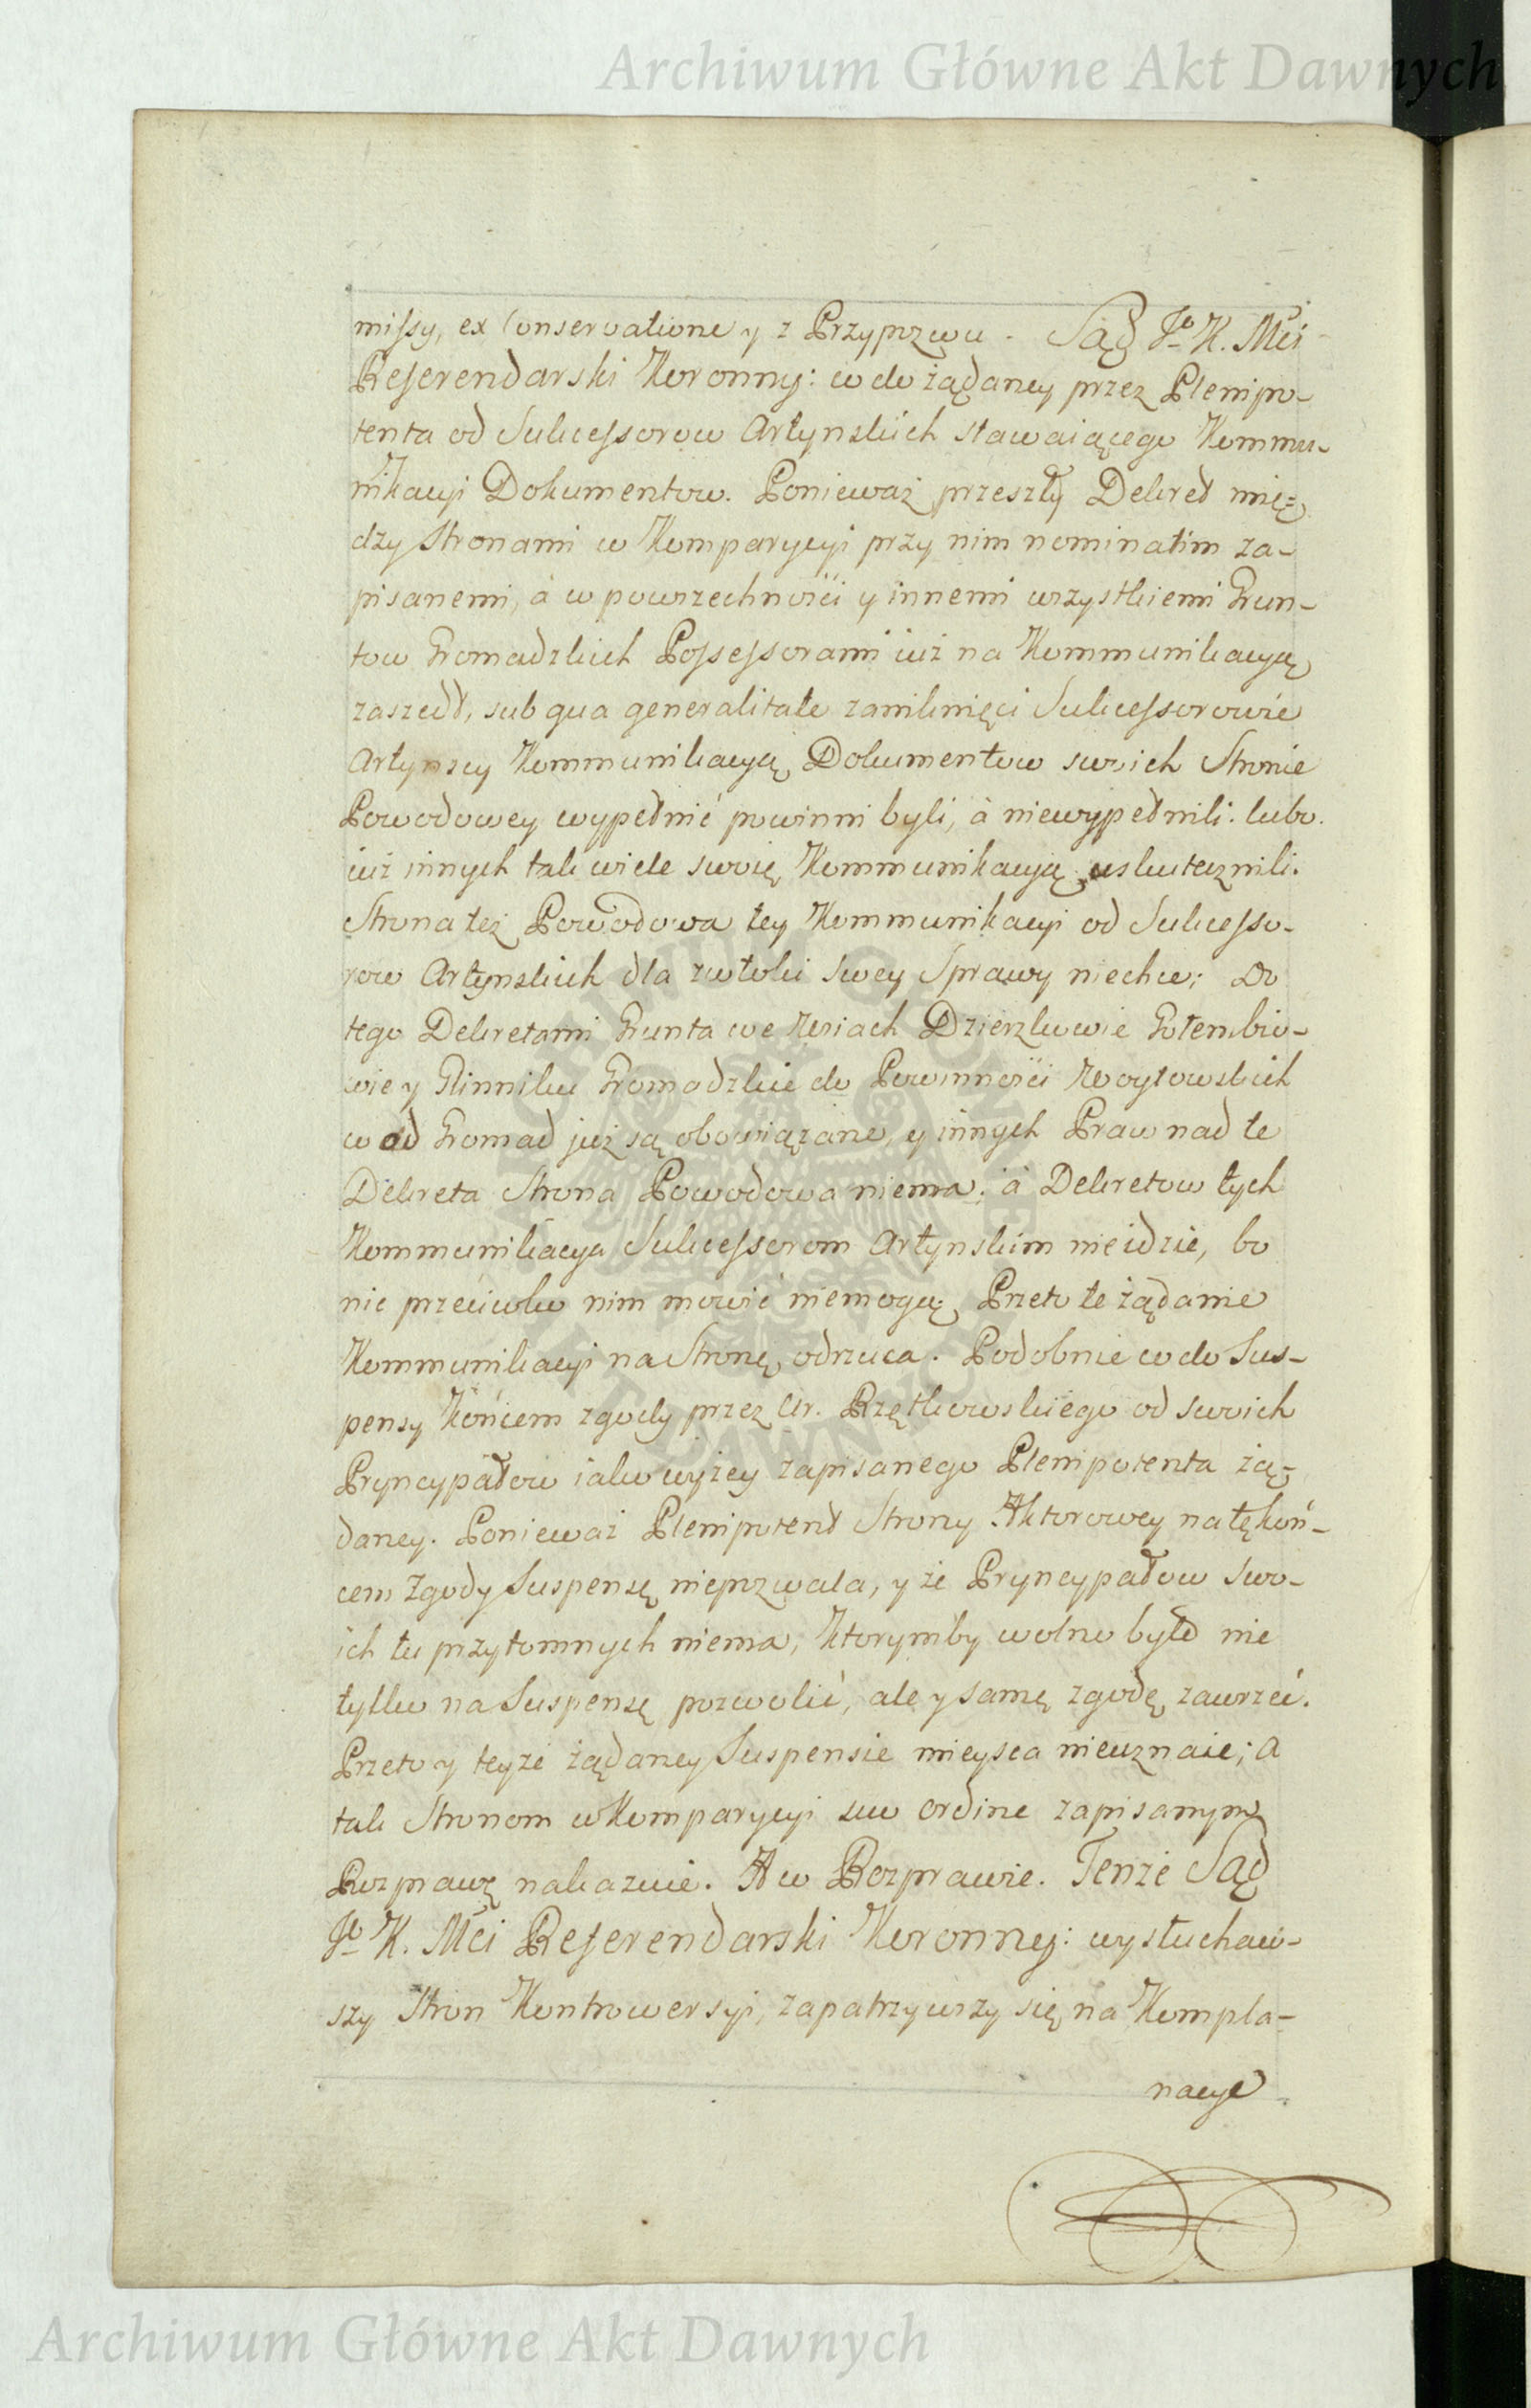 Archiwum Główne Akt Dawnych
missy, ex Conservatione y z Przypozwu. Sąd Jo K. Mci
Referendarski Koronny: co do żądaney przez Plenipo-
tenta od Sukcessorow Artynskich stawaiącego Kommu-
nikacyi Dokumentow. Ponieważ przeszły Dekret mię=
dzy Stronami w Komparycyi przy nim nominatim za-
pisanemi, à w powszechności y innemi wszystkiemi Grun-
tow Gromadzkich Possessorami iuż na Kommunikacyą
zaszedł, sub qua generalitate zamknięci Sukcessorowie
Artynscy Kommunikacyą Dokumentow swoich Stronie
Powodowey wypełnić powinni byli, à niewypełnili. lubo
iuż innych tak wiele swoię Kommunikacyą uskutecznili.
Strona też Powodowa tey Kommunikacyi od Sukcesso-
row Artynskich dla zwłoki swey Sprawy niechce; Do
tego Dekretami Grunta we Wsiach Dzierzkowie Gołembio-
wie y Glinniku Gromadzkie do Powinności Woytowskich
w od Gromad już są obowiązane, y innych Praw nad te
Dekreta Strona Powodowa niema. à Dekretow tych
Kommunikacya Sukcessorom Artynskim nieidzie, bo
nic przeciwko nim mowić niemogą; Przeto te żądanie
Kommunikacyi na Stronę odrzuca. Podobnie co do Sus-
pensy Końcem zgody przez Ur. Rzętkowskiego od swoich
Pryncypałow iako wyżey zapisanego Plenipotenta żą-
daney. Ponieważ Plenipotent Strony Aktorowey na tę koń-
cem Zgody Suspensę niepozwala, y że Pryncypałow swo-
ich tu przytomnych niema, Ktorymby wolno było nie
tylko na Suspensę pozwolić, ale y samę zgodę zawrzeć.
Przeto y teyże żądaney Suspensie mieysca nieuznaie; a
tak Stronom w Komparycyi suo ordine zapisanym
Rozprawę nakazuie. A w Rozprawie. Tenże Sąd
Jo K. Mci Referendarski Koronny: wysłuchaw-
szy Stron Kontrowersyi, zapatrzywszy się na Kompla-
nacye
Archiwum Główne Akt Dawnych